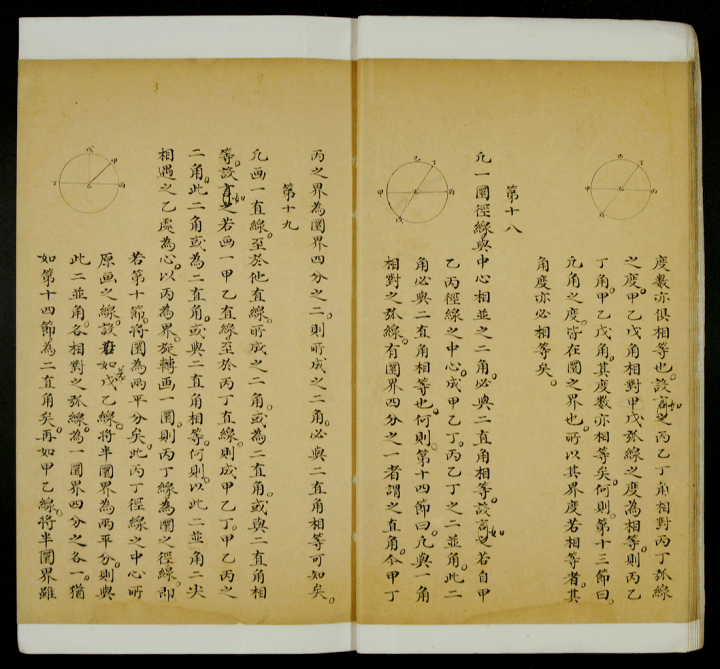 度數亦俱相等也。設如之丙乙丁角相對丙丁弧線
之度。甲乙戊角相對甲戊弧線之度為相等。則丙乙
丁角。甲乙戊角。其度數亦相等矣。何則。第十三節曰。
凡角之度。皆在圜之界也。所以其界度若相等者。其
角度亦必相等矣。
第十八
凡一圜徑線與中心相並之二角。必與二直角相等。設如若自甲
乙丙徑線之中心。成甲乙丁。丙乙丁之二並角。此二
角必與二直角相等也。何則。第十四節曰。凡與一角
相對之弧線。有圜界四分之一者。謂之直角。今甲丁
丙之界為圜界四分之二。則所成之二角。必與二直角相等可知矣。
第十九
凡画一直線。至於他直線。所成之二角。或為二直角。或與二直角相
等。設如若画一甲乙直線。至於丙丁直線。則成甲乙丁。甲乙丙之
二角。此二角或為二直角。或與二直角相等。何則。以此二並角二尖
相遇之乙處為心。以丙為界。旋轉画一圜。則丙丁線為圜之徑線。即
若第十節。將圜為兩平分矣。此丙丁徑線之中心所
原画之線。設若如戊乙線。將半圜界為兩平分。則與
此二並角。各相對之弧線。為一圜界四分之各一。猶
如第十四節為二直角矣。再如甲乙線。將半圜界雖
己
丁
甲
乙
丙
戊
丁
甲
乙
丙
戊
戊
甲
丁
乙
丙